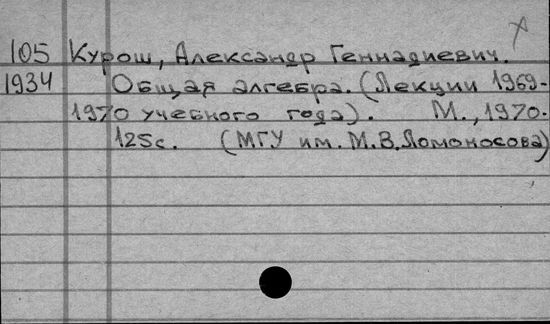 105 Курош, Александр Геннадиевич.
1934 Общая алгебра. (Лекции 1969-
1970 учебного года). М., 1970.
125с. (МГУ им. М.В.Ломоносова)